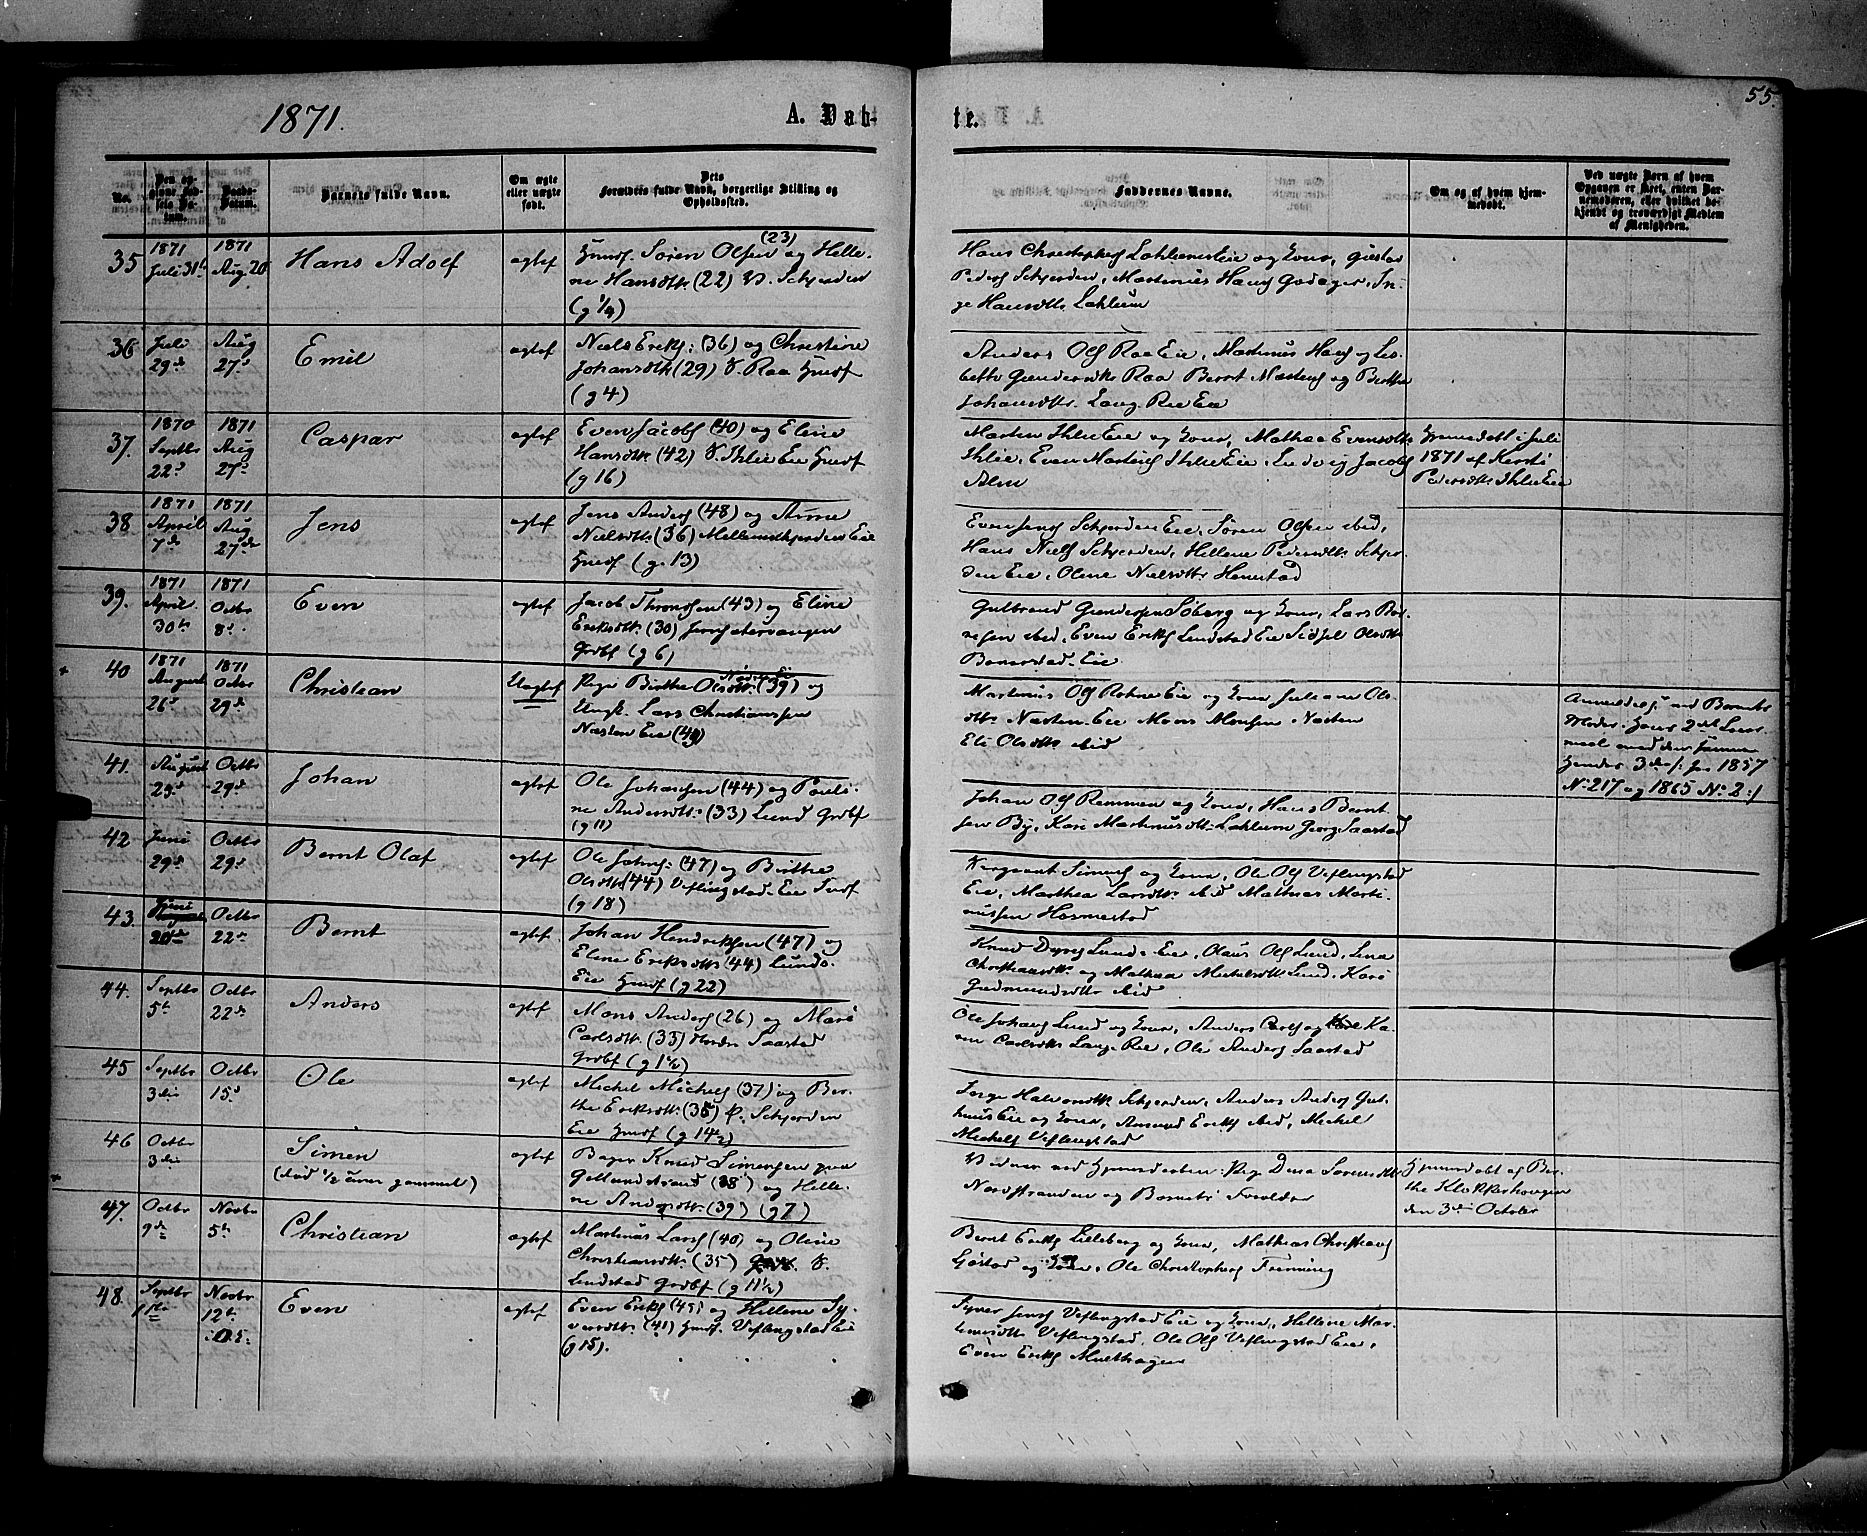 1871. A. Døb-
te. 55.
No.
Den op-
givne Fød-
sels Da-
tum.
Daabs-
Datum.
Barnets fulde Navn.
Om ægte
eller uægte
født.
Dets
Forældres fulde Navn, borgerlige Stilling og
Opholdssted.
Faddernes Navne.
Om og af hvem hjem-
medøbt.
Ved uægte Børn af hvem
Opgaven er skeet, enten Bar-
nemoderen, eller hvilket be-
kjendt og troværdigt Medlem
af Menigheden.
35
1871
Juli 31te
1871
Aug 20
Hans Adolf
ægtef
Huusf. Søren Olsen (23) og Helle-
ne Hansdttr. (22) V. Schjerden
(g ¼)
Hans Christophers Lahlumseie og Kone, Gustav
Peders Schjerden, Martinus Hans Godager, In-
ge Hansdttr Lahlum
36
Juli
29de
Aug
27de
Emil
ægtef
Niels Eriks: (36) og Christine
Johansdttr (29) V. Raa Huusf
(g 4)
Anders Ols Raa Eie, Martinus Hans og Lis-
beth Gundersdttr Raa Bernt Martins og Berthe
Johansdttr. Lang. Rie Eie
37.
1870
Septbr
22de
1871
Aug
27de
Caspar
ægtef
Even Jacobs (40) og Eline
Hansdttr. (42) V. Ihlie Eie Huusf
(g 16)
Martin Ihlie Eie og Kone, Mathea Evensdttr
Ihlie, Even Martins Ihlie Eie, Ludvig Jacobs
Alm
Hjemmedøbt i Juli
1871 af Kersti
Pedersdttr Ihlie Eie
38
1871
April
7de
1871
Aug
27de
Jens
ægtef
Jens Anders (48) og Anne
Nielsdttr. (36) Mellemschjerden Eie
Huusf (g. 13)
Even Jens Schjerden Eie, Søren Olsen ibid,
Hans Niels Schjerden, Hellene Pedersdttr Schjer-
den Eie, Oline Nielsdttr Hemstad
39.
1871
April
30te
1871
Octbr
8de
Even
ægtef
Jacob Thronsen (43) og Eline
Eriksdttr. (30)
Grdbf (g 6)
Gulbrand Gundersen Soberg og Kone, Lars
ibid, Even Eriks Lundstad Eie Sidsel Olsdttr
Eie
40
1871
August
26de
1871
Octbr
29de
Christian
Uægtef
Pige Birthe Olsdttr. (39) og
Ungk. Lars Christianssen
Næsten Eie (40)
Martinus Ols Rohne Eie og Kone Juliane Ols-
dttr Næsten Eie Mons Monsen Næsten
Eli Olsdttr ibid
Anmeldelse ved Barnets
Moder. Hans 2det Leier-
maal med den samme
Hendes 3die f. 1857
No 217 og 1865 No 2:/
41.
August
23de
Octbr
29de
Johan
ægtef
Ole Johansen (44) og Pauli-
ne Andersdttr. (33) Lund Grdbf
(g 11)
Johan Ols Remmen og Kone, Hans Bernt-
sen By, Kari Martinusdttr Lahlum Georg Saastad
42
Juni
29de
Octbr
29de
Bernt Olaf
ægtef
Ole Johns: (47) og Birthe
Olsdttr (44) Veflingstad Eie Indf
(g 18)
Simens og Kone, Ole Ols Veflingstad
Eie, Marthea Larsdttr ibid Mathias Marti-
nussen Hormestad
43.
Juni
20de
Octbr
22de
Bernt
ægtef.
Johan Hendriksen (47) og
Eline Eriksdttr (44) Lunds-
Eie Huusf (g 22)
Knud Dyres Lunds-Eie, Olaus Ols Lund, Lina
Christiansdttr og Mathea Michelsdttr Lund, Kari
Gudmundsdttr ibid
44.
Septbr
5te
Octbr
22de
Anders
ægtef
Mons Anders (26) og Mari
Carlsdttr. (33) Nordre Saastad
Grdbf (g 1½)
Ole Johans Lund og Kone, Anders Carls og Ka-
ren Carlsdttr Lang-Rie, Ole Anders Saastad
45
Septbr
3die
Octbr
15de
Ole
ægtef
Michel Michels (37) og Ber-
the Eriksdttr. (35) V. Schjerden
Eie Huusf (g 14½)
Inge Halvorsdttr Schjerden, Anders Anders Gut-
huus Eie og Kone, Amund Eriks ibid, Michel
Michels Veflingstad
46
Octbr
3die
Simen
(død ½ time gammel)
ægtef
Bager Knud Simensen paa
Gillundstrand (38) og Helle-
ne Andersdttr. (39) (g 7)
Vidner ved Hjemmedøben: Pige Dina Sørensdttr
Nordstranden og Barnets Forældre
Hjemmedøbt af Ber-
the Klokkerhougen
den 3die October
47.
Octbr
9de
Novbr
5te
Christian
ægtef
Martinus Lars (40) og Oline
Christiansdttr. (35) V.
Lundstad Grdbf (g 11½)
Bernt Eriks Lilleberg og Kone, Mathias Christians
Gjøstad og Kone, Ole Christophers Fremming
48.
Septbr
11te
Novbr
12te
Even
ægtef
Even Eriks (45) og Hellene Sy-
versdttr. (41) Huusf. Veflingstad Eie
(g 15).
Syver Jens Veflingstad Eie og Kone, Hellene Mar-
tinusdttr Veflingstad, Ole Ols Veflingstad Eie,
Even Eriks Mælthagen